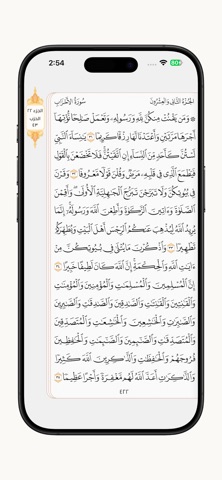 2:54
الجزء ٢٢
الحزب
٤٣
الجُزْءُ الثَّانِي وَالعِشْرُونَ
سُورَةُ الأَحْزَابِ
۞ وَمَن يَقْنُتْ مِنكُنَّ لِلَّهِ وَرَسُولِهِۦ وَتَعْمَلْ صَٰلِحًا نُّؤْتِهَآ
أَجْرَهَا مَرَّتَيْنِ وَأَعْتَدْنَا لَهَا رِزْقًا كَرِيمًا ٣١ يَٰنِسَآءَ ٱلنَّبِيِّ
لَسْتُنَّ كَأَحَدٍ مِّنَ ٱلنِّسَآءِ إِنِ ٱتَّقَيْتُنَّ فَلَا تَخْضَعْنَ بِٱلْقَوْلِ
فَيَطْمَعَ ٱلَّذِى فِى قَلْبِهِۦ مَرَضٌ وَقُلْنَ قَوْلًا مَّعْرُوفًا ٣٢ وَقَرْنَ
فِى بُيُوتِكُنَّ وَلَا تَبَرَّجْنَ تَبَرُّجَ ٱلْجَٰهِلِيَّةِ ٱلْأُولَىٰ وَأَقِمْنَ
ٱلصَّلَوٰةَ وَءَاتِينَ ٱلزَّكَوٰةَ وَأَطِعْنَ ٱللَّهَ وَرَسُولَهُۥٓ إِنَّمَا
يُرِيدُ ٱللَّهُ لِيُذْهِبَ عَنكُمُ ٱلرِّجْسَ أَهْلَ ٱلْبَيْتِ وَيُطَهِّرَكُمْ
تَطْهِيرًا ٣٣ وَٱذْكُرْنَ مَا يُتْلَىٰ فِى بُيُوتِكُنَّ مِنْ
ءَايَٰتِ ٱللَّهِ وَٱلْحِكْمَةِ إِنَّ ٱللَّهَ كَانَ لَطِيفًا خَبِيرًا ٣٤
إِنَّ ٱلْمُسْلِمِينَ وَٱلْمُسْلِمَٰتِ وَٱلْمُؤْمِنِينَ وَٱلْمُؤْمِنَٰتِ
وَٱلْقَٰنِتِينَ وَٱلْقَٰنِتَٰتِ وَٱلصَّٰدِقِينَ وَٱلصَّٰدِقَٰتِ وَٱلصَّٰبِرِينَ
وَٱلصَّٰبِرَٰتِ وَٱلْخَٰشِعِينَ وَٱلْخَٰشِعَٰتِ وَٱلْمُتَصَدِّقِينَ
وَٱلْمُتَصَدِّقَٰتِ وَٱلصَّٰٓئِمِينَ وَٱلصَّٰٓئِمَٰتِ وَٱلْحَٰفِظِينَ
فُرُوجَهُمْ وَٱلْحَٰفِظَٰتِ وَٱلذَّٰكِرِينَ ٱللَّهَ كَثِيرًا
وَٱلذَّٰكِرَٰتِ أَعَدَّ ٱللَّهُ لَهُم مَّغْفِرَةً وَأَجْرًا عَظِيمًا ٣٥
٤٢٢